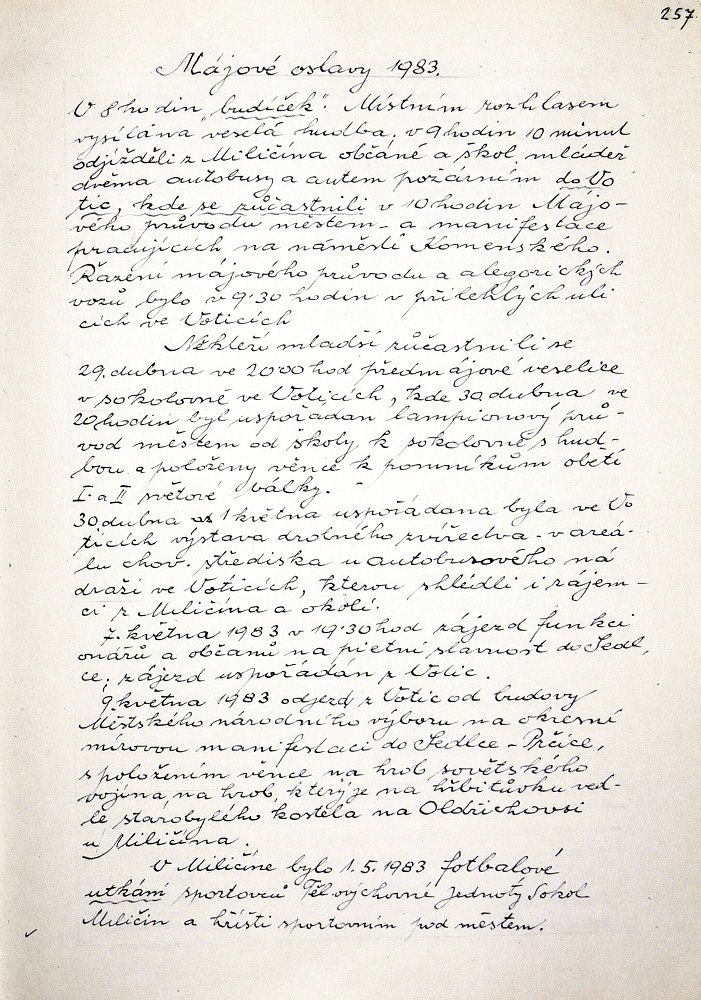 257
Májové oslavy 1983.
V 8 hodin "budíček". Místním rozhlasem
vysílána veselá hudba, v 9 hodin 10 minut
odjížděli z Miličína občané a škol. mládež
dvěma autobusy a autem požárním do Vo
tic, kde se zúčastnili v 10 hodin Májo-
vého průvodu městem - a manifestace
pracujících na náměstí Komenského.
Řazení májového průvodu a alegorických
vozů bylo v 9·30 hodin v přilehlých uli
cích ve Voticích
Někteří mladší zúčastnili se
29. dubna ve 20·00 hod předmájové veselice
v sokolovně ve Voticích, kde 30. dubna ve
20 hodin byl uspořádán lampionový prů-
vod městem od školy k sokolovně s hud-
bou a položeny věnce k pomníkům obětí
I. a II světové války.
30. dubna 1 května uspořádana byla ve Vo
ticích výstava drobného zvířectva - v areá-
lu chov. střediska u autobusového ná
draží ve Voticích, kterou shlédli i zájem-
ci z Miličína a okolí.
7. května 1983 v 19·30 hod zájezd funkci
onářů a občanů na pietní slavnost do Sedl,
ce; zájezd uspořádán z Votic.
9 května 1983 odjezd z Votic od budovy
Městského národního výboru na okresní
mírovou manifestaci do Sedlce - Prčice,
s položením věnce na hrob sovětského
vojína, na hrob, který je na hřbitůvku ved-
le starobylého kostela na Oldřichovsi
u Miličína.
V Miličíně bylo 1.5.1983 fotbalové
utkání sportovců Tělovýchovné Jednoty Sokol
Miličín a hřišti sportovním pod městem.